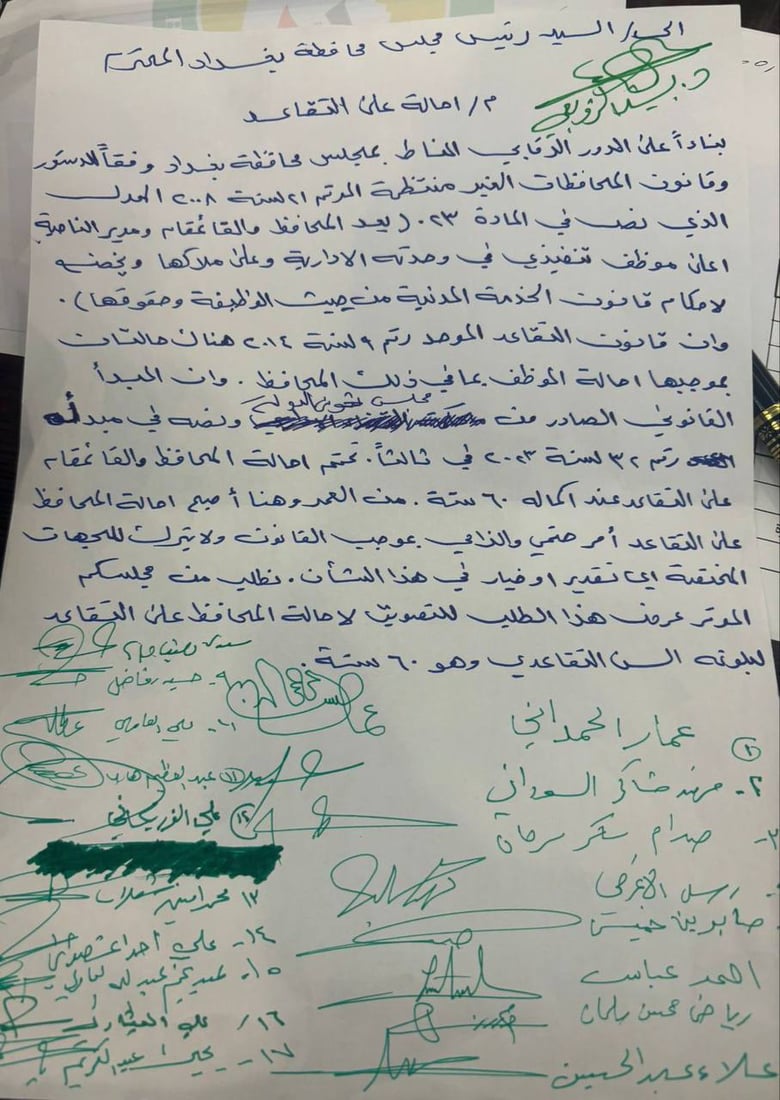 الى/ السيد رئيس مجلس محافظة بغداد المحترم
م/ احالة على التقاعد
بناداً على الدور الرقابي المناط بمجلس محافظة بغداد وفقاً للدستور
وقانون المحافظات الغير منتظمة المرقم ٢١ لسنة ٢٠٠٨ المعدل
الذي نص في المادة ٢٣. (يعد المحافظ والقائمقام ومدير الناحية
اعلى موظف تنفيذي في وحدته الادارية وعلى ملاكها ويخضع
لاحكام قانون الخدمة المدنية من حيث الوظيفة وحقوقها).
وان قانون التقاعد الموحد رقم ٩ لسنة ٢٠١٤ هناك حالتان
بموجبها احالة الموظف بما في ذلك المحافظ. وان المبدأ
القانوني الصادر من مجلس شورى الدولة ونصه في مبدأه
رقم ٣٢ لسنة ٢٠٢٣ في ثالثاً. تحتم احالة المحافظ والقائمقام
على التقاعد عند اكماله ٦٠ سنة. من العمر وهنا أصبح احالة المحافظ
على التقاعد أمر حتمي والزامي بموجب القانون ولا يترك للجهات
المختصة اي تقدير او خيار في هذا الشأن. نطلب من مجلسكم
الموقر عرض هذا الطلب للتصويت لاحالة المحافظ على التقاعد
لبلوغه السن التقاعدي وهو ٦٠ سنة.
١ عمار الحمداني
٢- مهند شاكر السوداني
٣- صدام عسكر سرحان
صابرين خميس
احمد عباس
رياض محسن سلمان
علاء عبد الحسين
٩-
١٠- علي العامري
١١ عبد العظيم
١٢ علي
١٣ محمد امين شعلان
١٤- علي
١٥-
١٦/ علي
١٧- يحيى عبد الكريم